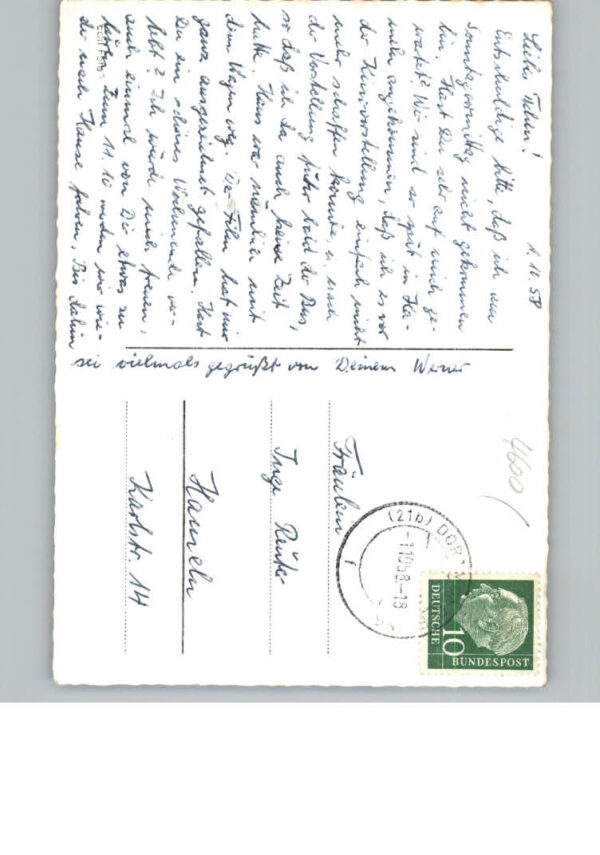 1.10.58
Entschuldige bitte, daß ich am
Sonntagvormittag nicht gekommen
bin. Hast Du sehr auf mich ge-
wartet? Wir sind so spät in Ha-
meln angekommen, daß ich es vor
der Kinovorstellung einfach nicht
mehr schaffen konnte, u. nach
der Vorstellung fuhr bald der Bus,
so daß ich da auch keine Zeit
hatte. Hans war nämlich mit
dem Wagen weg. Der Film hat mir
ganz ausgezeichnet gefallen. Hast
Du ein schönes Wochenende ver-
lebt? Ich würde mich freuen,
auch einmal von Dir etwas zu
hören. Zum 11.10 werden wir wie-
der nach Hause fahren. Bis dahin
sei vielmals gegrüßt von Deinem Werner
Echt Foto
Fräulein
Inge Reuter
Hameln
Karlstr. 14
4600
(21b) DOR
-1.10.58-18
DEUTSCHE
BUNDESPOST
10